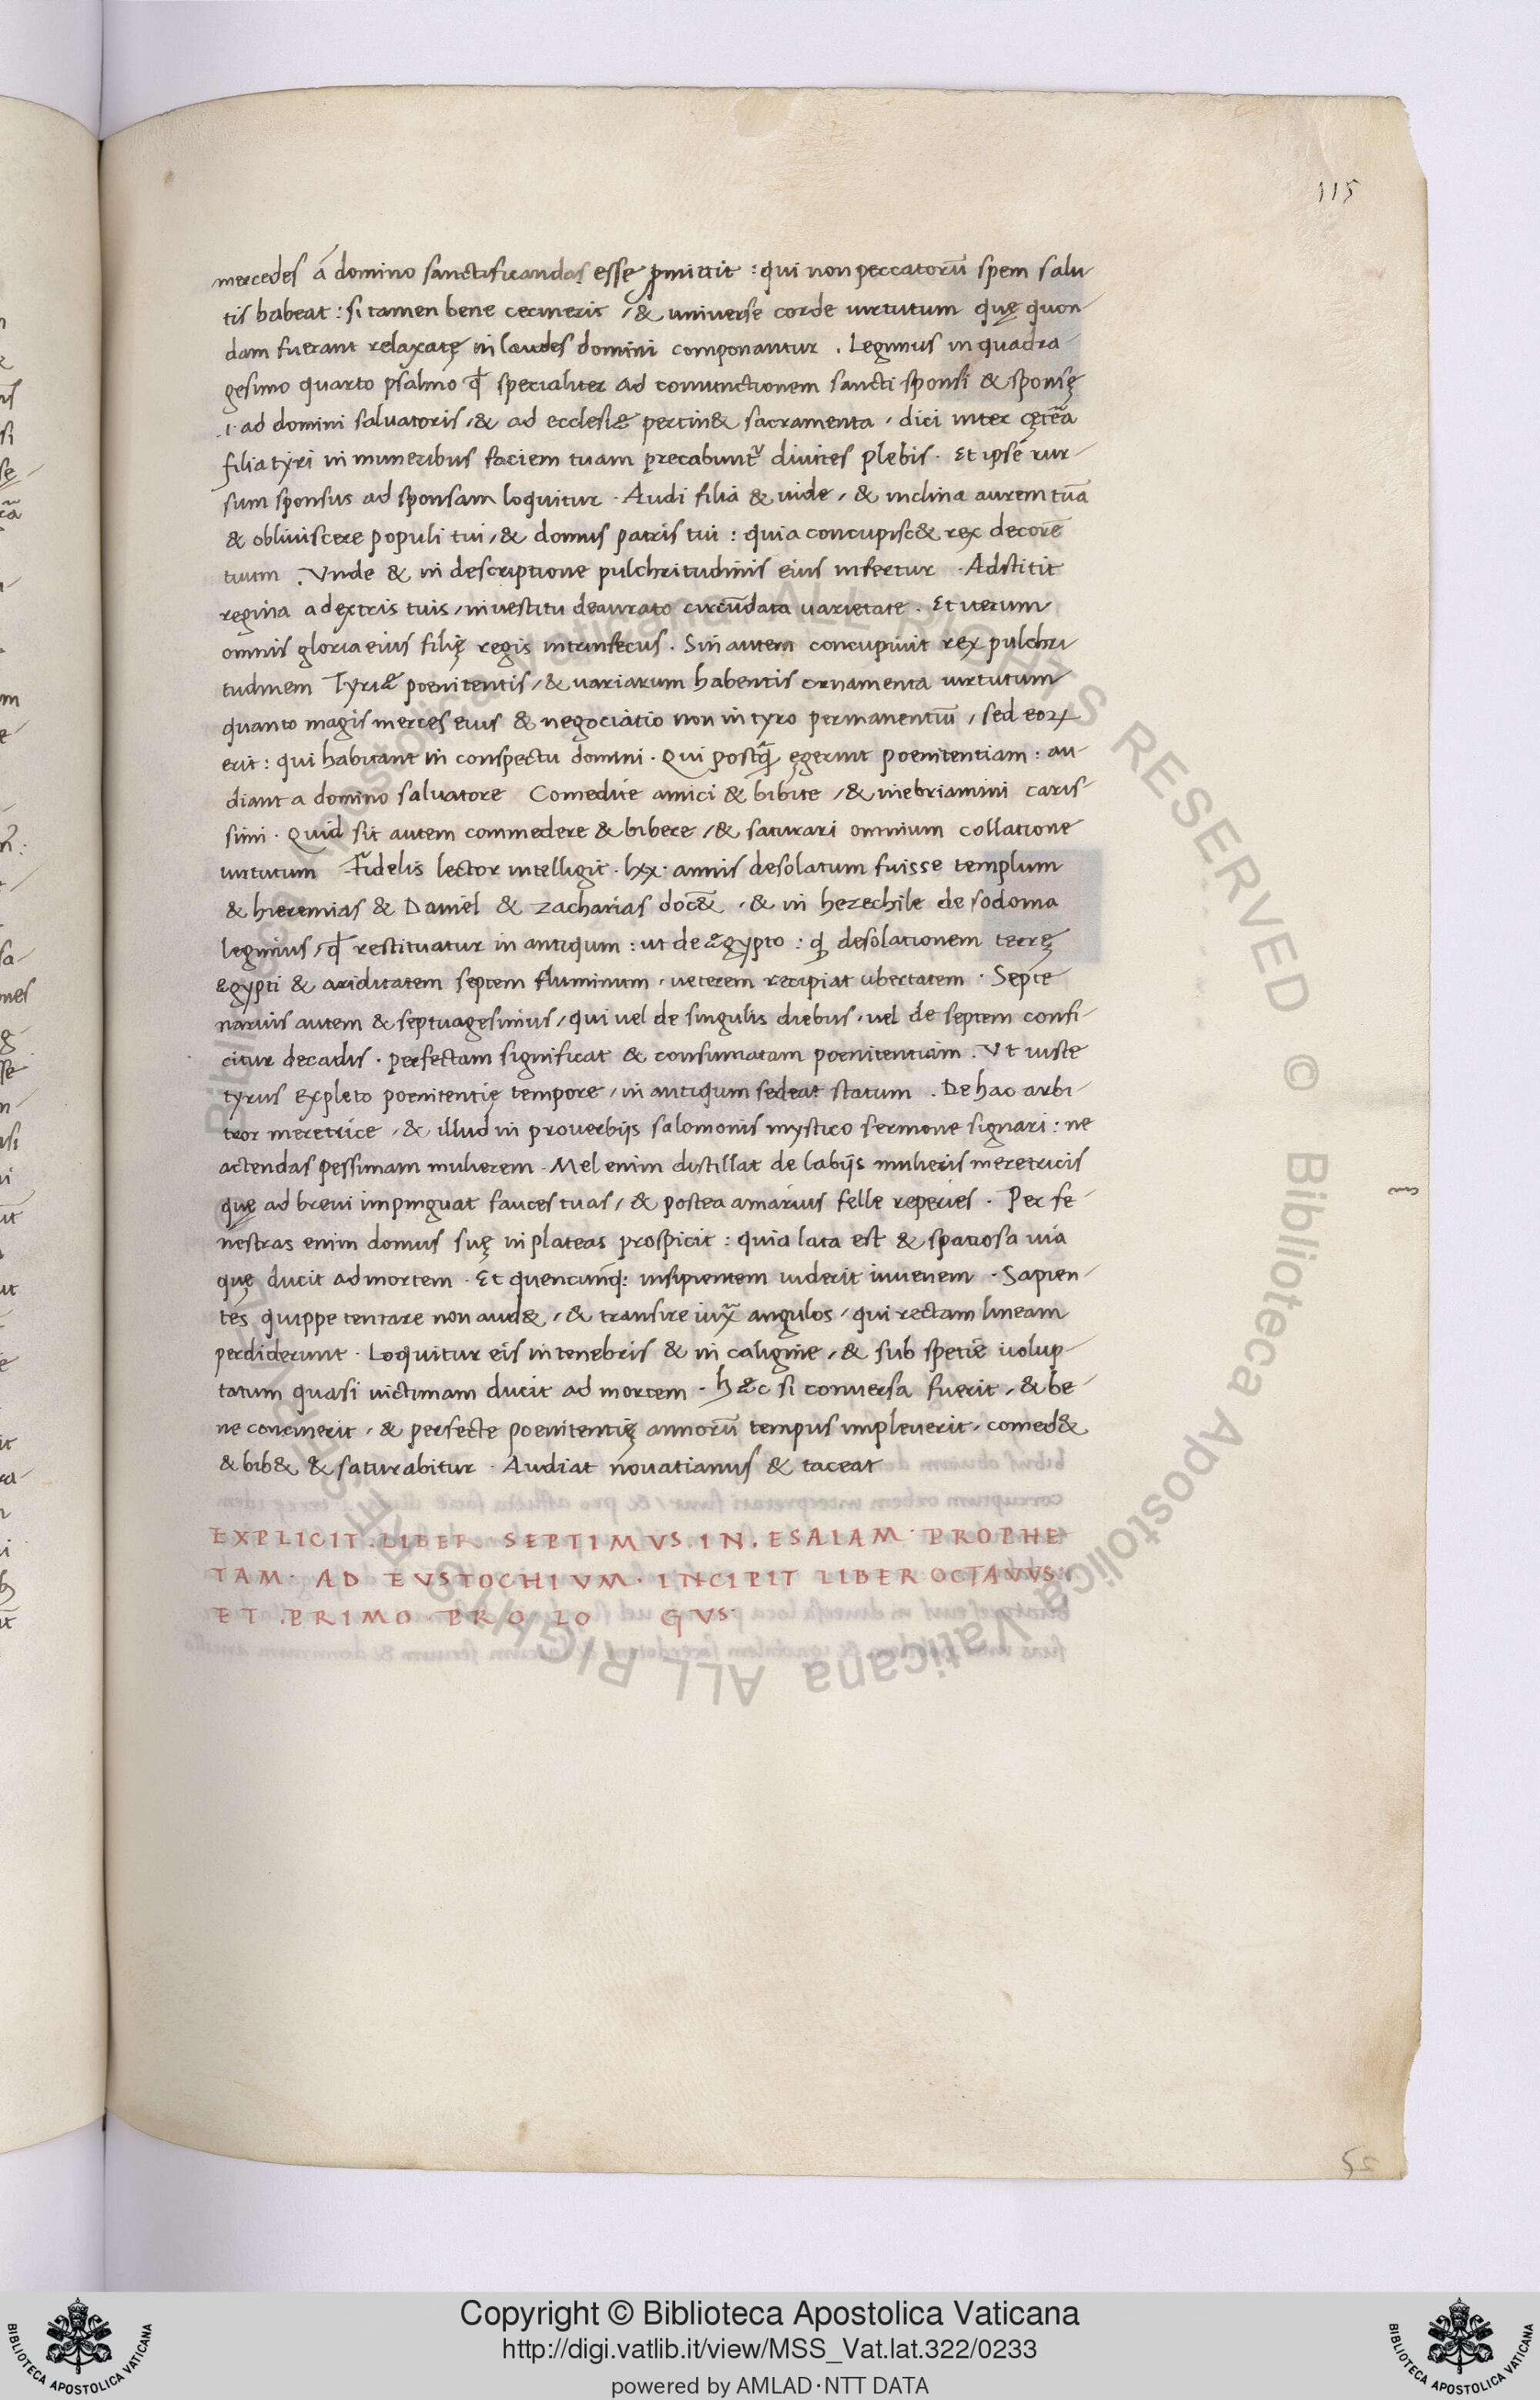 115
mercedes a domino sanctificandas esse ꝓmittit : qui non peccatorū spem salu
tis habeat : si tamen bene cecinerit / & universe corde uirtutum quę quon
dam fuerant relaxatę in laudes domini componantur . Legimus in quadra
gesimo quarto psalmo qđ specialiter ad coniunctionem sancti sponsi & sponsę
.i. ad domini saluatoris / & ad ecclesiæ pertin& sacramenta / dici inter cętēa
filia tyri in muneribus faciem tuam precabunt᷑ diuites plebis . Et ipse rur
sum sponsus ad sponsam loquitur . Audi filia & uide / & inclina aurem tuā
& obliuiscere populi tui / & domus patris tui : quia concupisc& rex decorē
tuum . Vnde & in descriptione pulchritudinis eius infertur . Adstitit
regina a dextris tuis / in uestitu deaurato circūdata uarietate . Et iterum
omnis gloria eius filię regis intrinsecus . Sin autem concupiuit rex pulchri
tudinem Tyriæ poenitentis / & uariarum habentis ornamenta uirtutum
quanto magis merces eius & negociatio non in tyro permanentiū / sed eoꝝ
erit : qui habitant in conspectu domini . Qui postq̄ ęgerint poenitentiam : au
diant a domino saluatore Comedite amici & bibite / & inebriamini caris
simi . Quid sit autem commedere & bibere / & saturari omnium collatione
uirtutum Fidelis lector intelligit . lxx . annis desolatum fuisse templum
& hieremias & Daniel & zacharias doc& / & in hezechile de sodoma
legimus / qđ restituatur in antiqum : ut de ægypto : ꝙ desolationem terrę
ęgypti & ariditatem septem fluminum / ueterem recipiat ubertatem . Septe
narius autem & septuagesimus / qui uel de singulis diebus / uel de septem confi
citur decadis . perfectam significat & consumatam poenitentiam . Vt iuste
tyrus expleto poenitentię tempore / in antiqum sedeat statum . De hac arbi
tror meretrice / & illud in proverbijs salomonis mystico sermone signari : ne
actendas pessimam mulierem . Mel enim distillat de labijs mulieris meretricis
quę ad breui impinguat fauces tuas / & postea amarius felle reperies . Per fe
nestras enim domus suę in plateas prospicit : quia lata est & spatiosa uia
quę ducit ad mortem . Et quencunq; insipientem uiderit iuuenem . Sapien
tes quippe tentare non aud& / & transire iux̄ angulos / qui rectam lineam
perdiderunt . Loquitur eis in tenebris & in caligine / & sub spetie uolup
tatum quasi uictimam ducit ad mortem . hæc si conuersa fuerit / & be
ne concinerit / & perfecte poenitentię annorū tempus impleuerit / comed&
& bib& & saturabitur . Audiat nouatianus & taceat
EXPLICIT . LIBER . SEPTIMVS . IN . ESAIAM . PROPHE
TAM . AD EVSTOCHIVM . INCIPIT LIBER OCTAVVS .
ET . PRIMO . PRO LO GVS
Copyright © Biblioteca Apostolica Vaticana
http://digi.vatlib.it/view/MSS_Vat.lat.322/0233
powered by AMLAD·NTT DATA
BIBLIOTECA APOSTOLICA VATICANA
BIBLIOTECA APOSTOLICA VATICANA